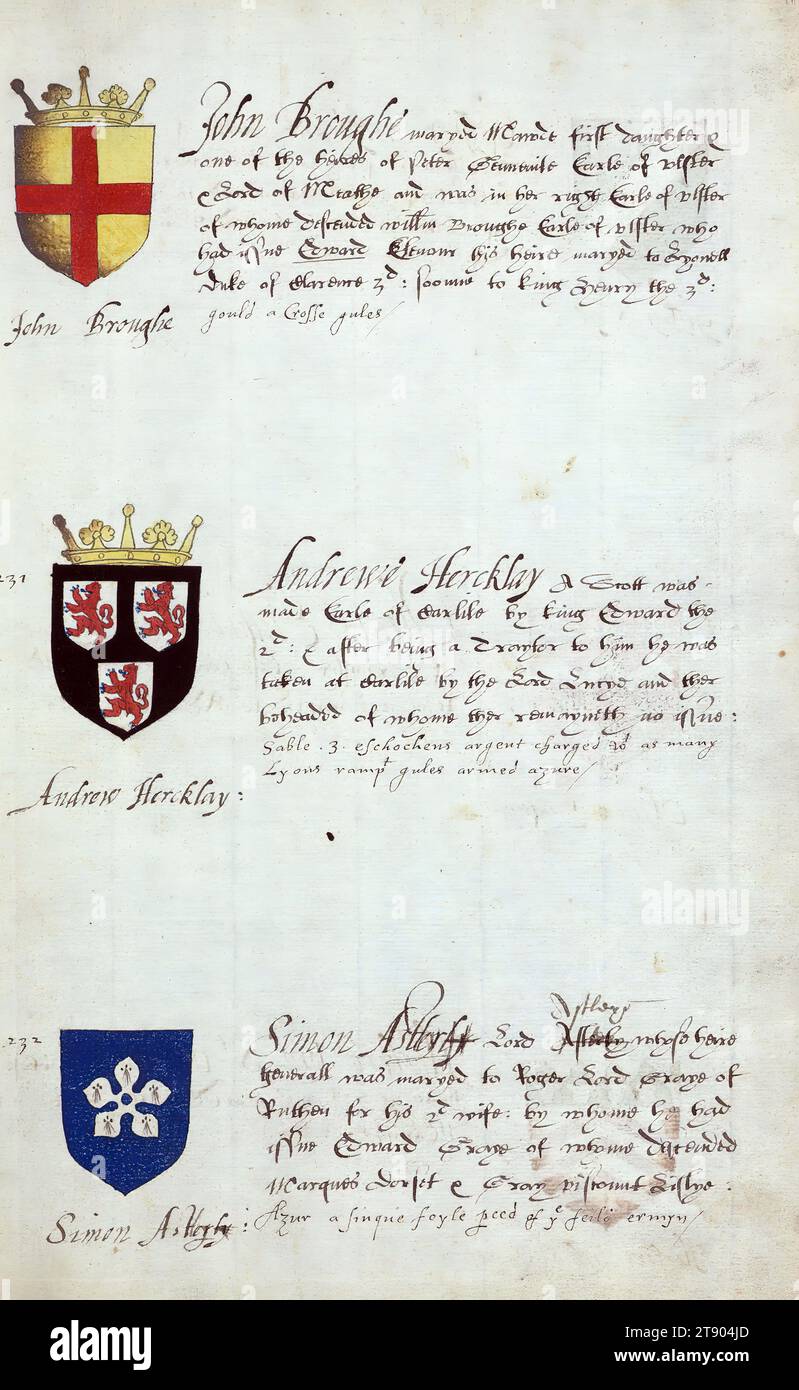 John Broughe maryed Mawde first daughter &
one of the heires of Peter Earle of Ulster
& Lord of Meathe and was in her right Earle of Ulster
of whome descended willm Broughe Earle of Ulster who
had issue Edward his heire maryed to Lyonell
Duke of Clarence 3d: sonne to king Henry the 3d:
gould a Crosse gules/
John Broughe
231
Andrewe Hercklay A Scott was
made Earle of Carlile by king Edward the
2d: & after being a Traytor to him he was
taken at Carlile by the Lord Lucye and ther
beheaded of whome ther remayneth no issue:
Sable .3. eschochens argent charged wt as many
Lyons rampt gules armed azure/
Andrew Hercklay:
232
Astleye
Simon Lord whose heire
generall was maryed to Roger Lord Graye of
Ruthen for his 2d wife: by whome he had
issue Edward Graye of whome descended
Marques Dorset & Gray viscount Lislye:
Azur a sinque foyle of ye feild ermyn/
Simon
alamy
Image ID: 2T904JD
www.alamy.com